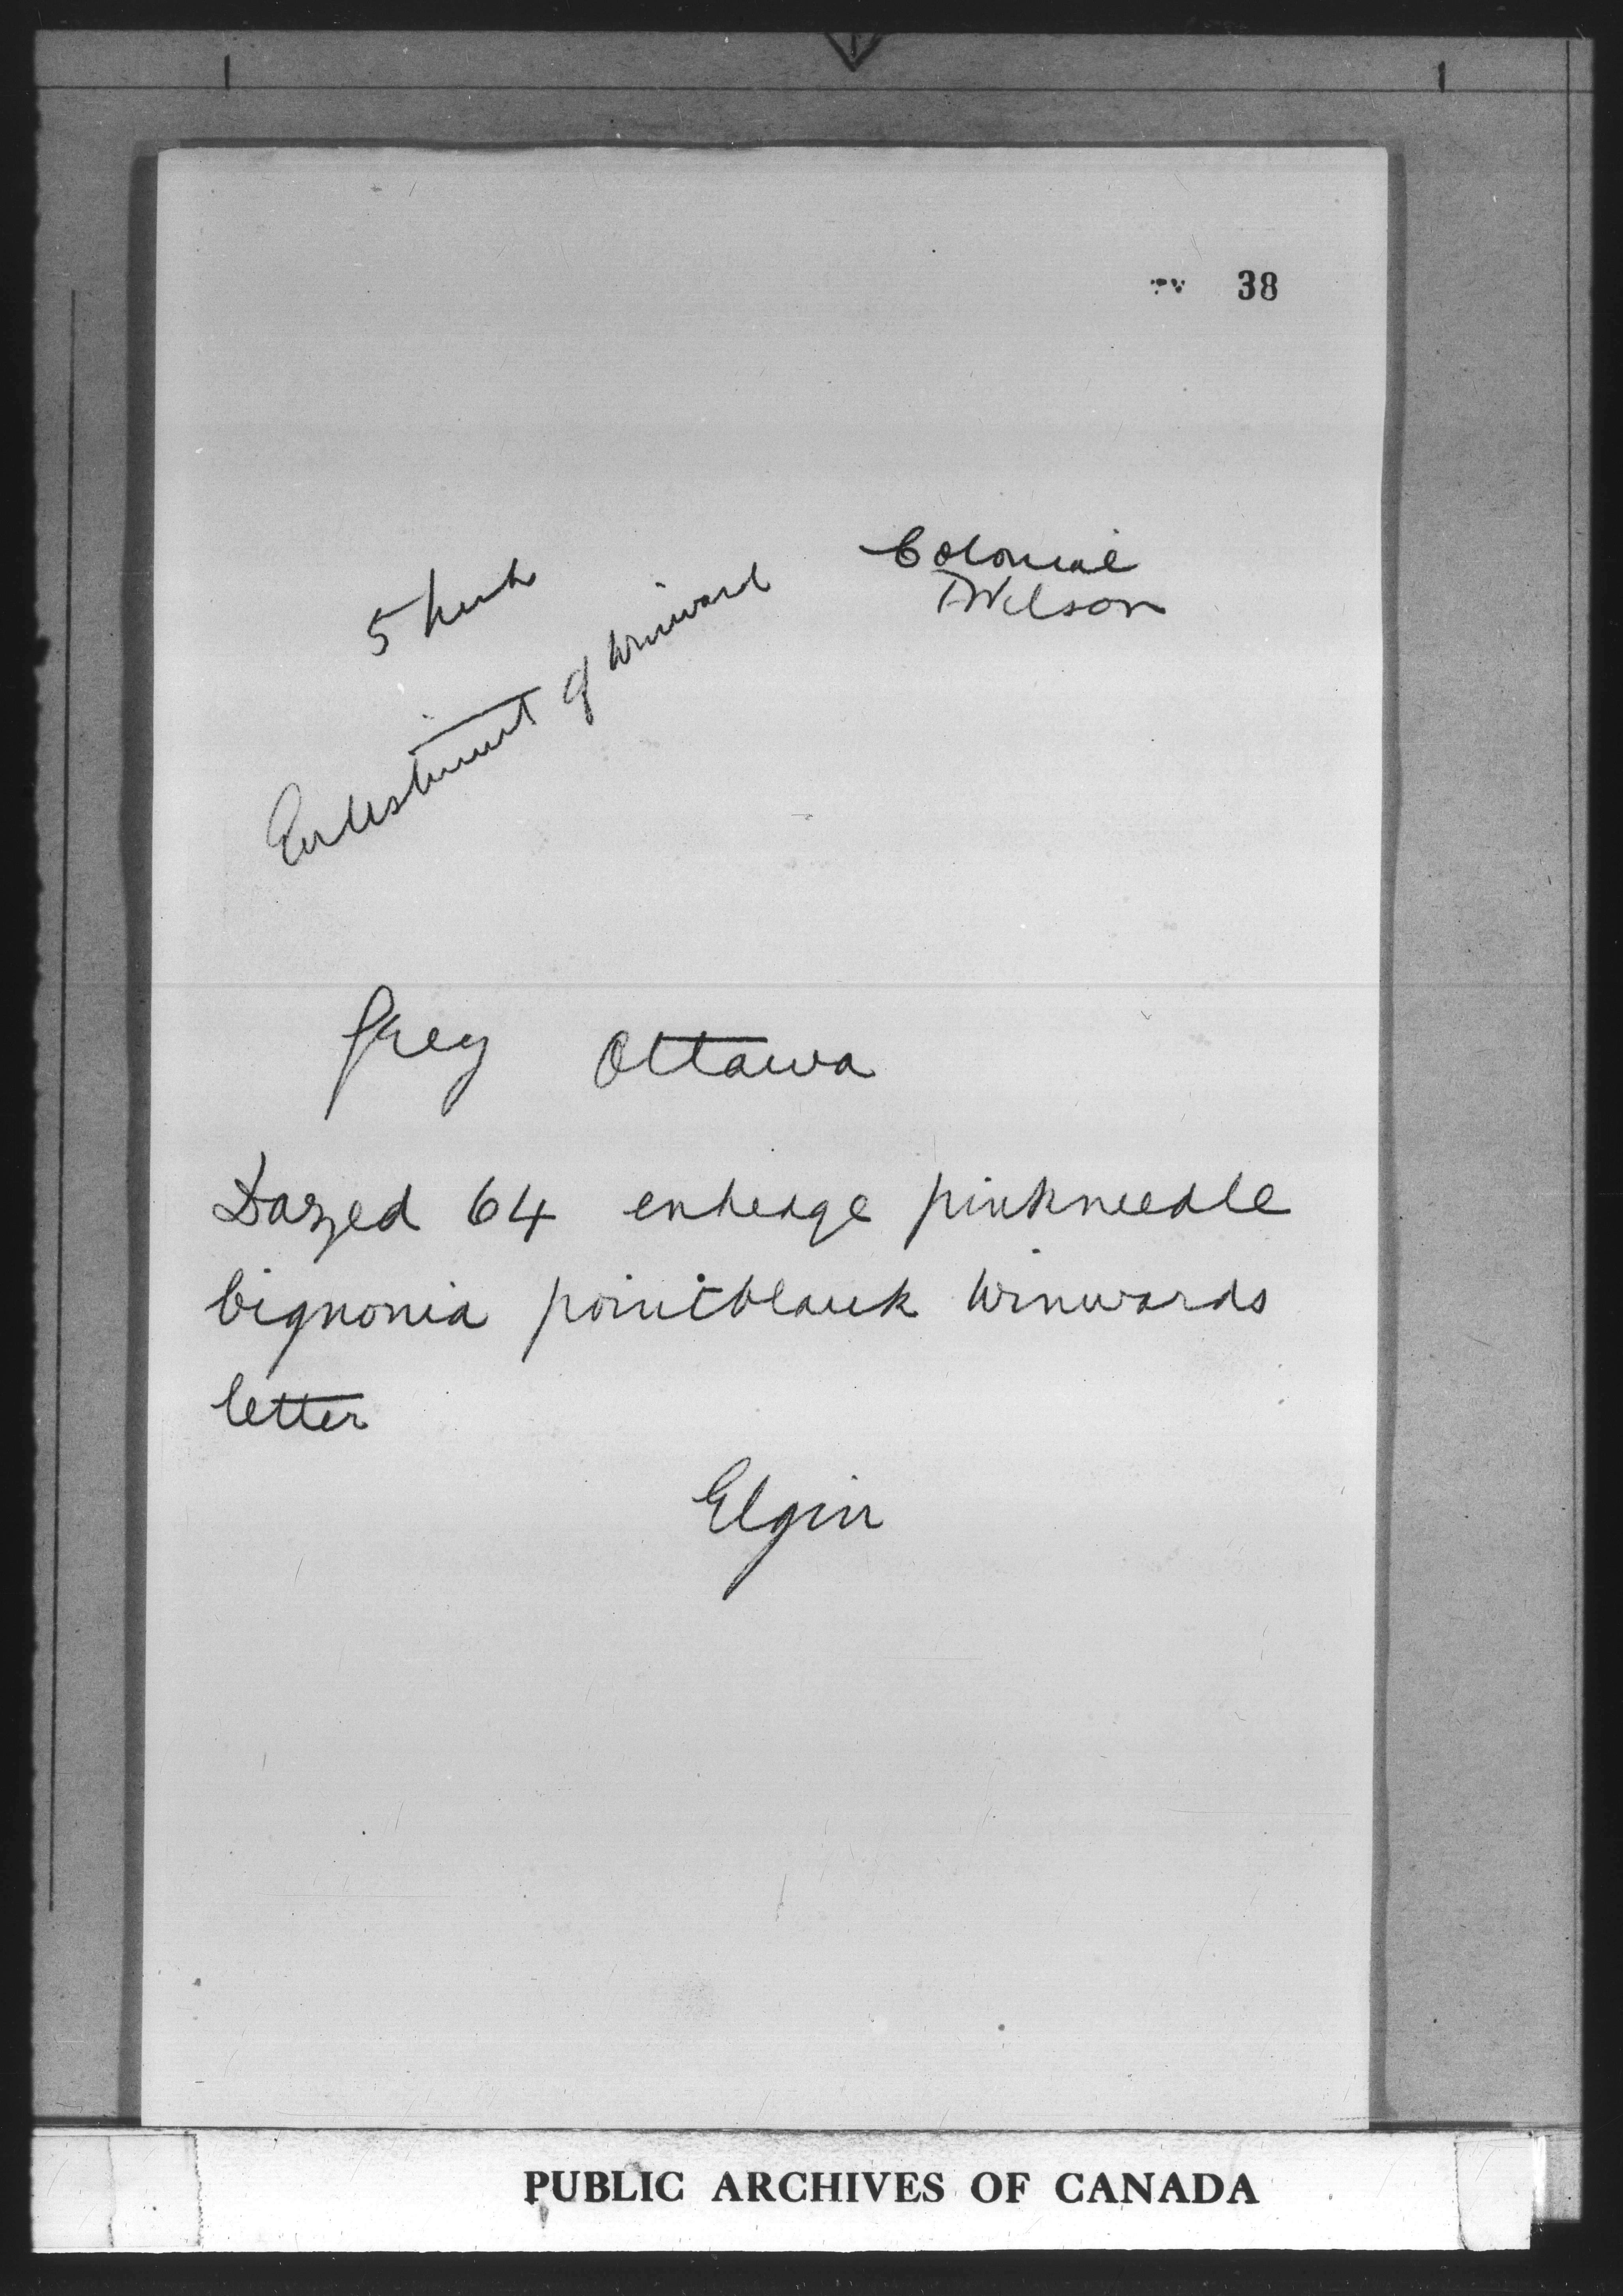 38
Colonial
Wilson
5
Enlistment of Winward
Grey Ottawa
Dazed 64 enhedge pinkneedle
bignonia pointblank Winwards
letter
Elgin
PUBLIC ARCHIVES OF CANADA